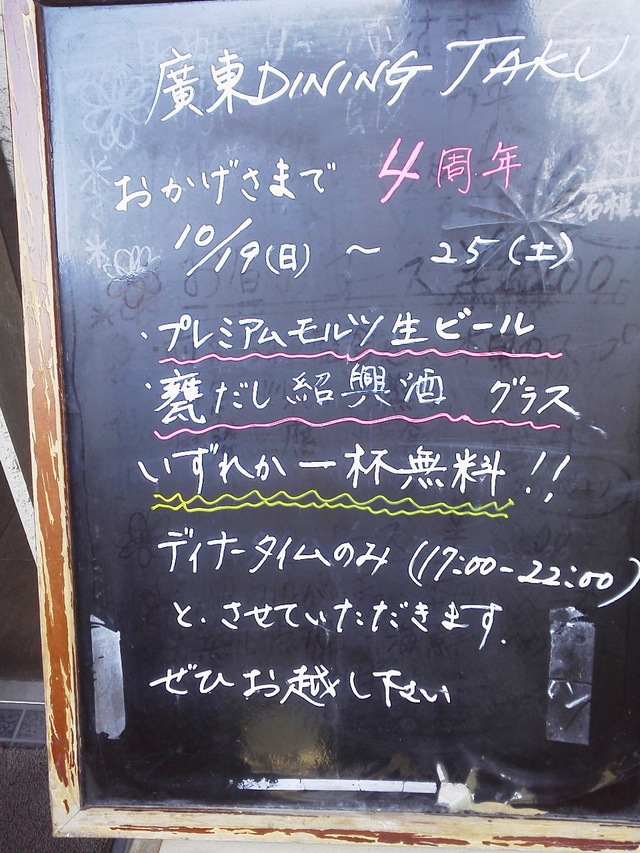 廣東DINING TAKU
おかげさまで 4周年
10/19(日) ～ 25(土)
・プレミアムモルツ生ビール
・甕だし紹興酒 グラス
いずれか一杯無料!!
ディナータイムのみ(17:00-22:00)
と、させていただきます。
ぜひお越し下さい